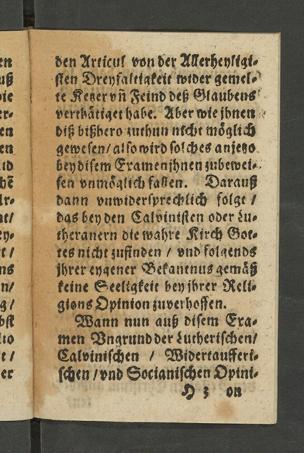 den Articul von der Allerheyligi-
sten Dreyfaltigkeit wider gemel-
te Ketzer vñ Feind deß Glaubens
verthätiget habe. Aber wie jhnen
diß bißhero zuthun nicht möglich
gewesen/ also wird solches anjetzo
bey disem Examen jhnen zubewei-
sen vnmöglich fallen. Darauß
dann vnwidersprechlich folge /
das bey den Calvinisten oder Lu-
theranern die wahre Kirch Got-
tes nicht zufinden / vnd folgends
jhrer eygener Bekantnus gemäß
keine Seeligkeit bey jhrer Reli-
gions Opinion zuverhoffen.
Wann nun auß disem Exa-
men Vngrund der Lutherischen/
Calvinischen / Widertaufferi-
schen/ vnd Socianischen Opini-
H 3 on